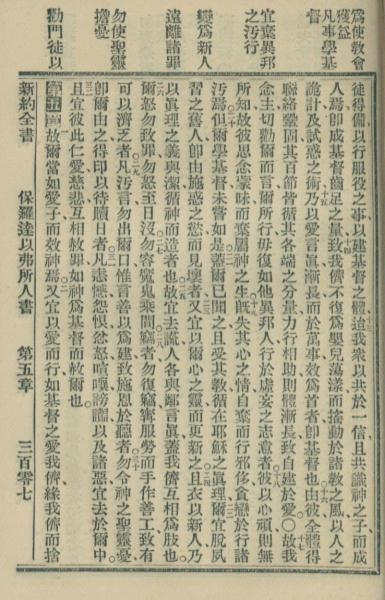 為使教會
獲益
凡事學基
督
宜棄異邦
之污行
變為新人
遠離諸罪
勿使聖靈
擔憂
勸門徒以
徒得備以行服役之事以建基督之體迨我衆以共於一信且共識神之子而成
人焉卽成基督齒足之量致我儕不復為嬰兒蕩漾而搖動於諸教之風以人之
詭計及試惑之術乃以愛言眞漸長而於萬事效為首者卽基督也由彼全體得
聯絡鞏固其百節皆循其各端之分量力行相助則體漸長致自建於愛〇故我
念主切勸爾而言爾所行毋復如他異邦人行於虛妄之志意者彼以心頑則無
所知故彼思念蒙昧而棄神之生旣失其心之情自棄而行邪侈貪戀於行諸
污焉但爾學基督未嘗如是蓋爾已聞之且受其教循在耶穌之眞理爾宜脫夙
昔之舊人卽由施惑之慾而見壞者又宜以爾心之靈而更新之且衣以新人乃
以眞理之義與潔循神而造者也故宜去謊人各與鄰言眞蓋我儕互相為肢也
爾怒勿致罪勿怒至日沒勿容魔鬼乘間竊者勿復竊寧服勞而手作善工致有
可以濟乏者凡污言勿出爾口惟言善以為建致施恩於聽者勿令神之聖靈憂
卽爾由之得印以待贖日者凡悲慽怨恨忿怒喧嚷謗讟以及諸惡宜去於爾中
且宜彼此仁愛慈悲互相赦罪如神為基督而赦爾也
第五章故爾當如愛子而效神焉又宜以愛而行如基督之愛我儕緣我儕而捨
新約全書 保羅達以弗所人書 第五章 三百零七